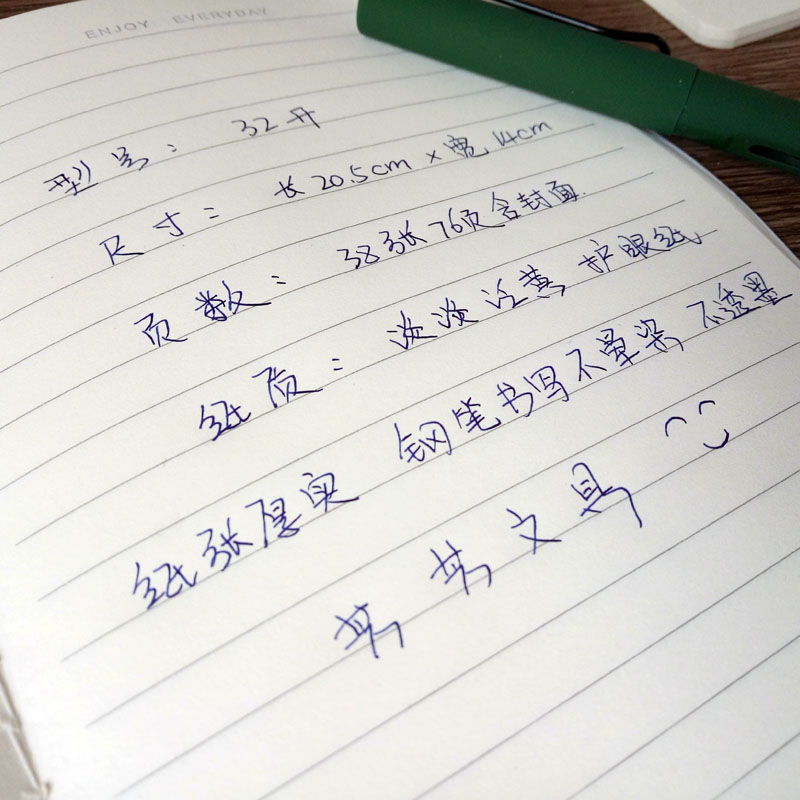 ENJOY EVERYDAY
型号: 32开
尺寸: 长20.5cm×宽14cm
页数: 38张76页含封面.
纸质: 淡淡近黄 护眼纸
纸张厚实 钢笔书写不晕染 不透墨
文具